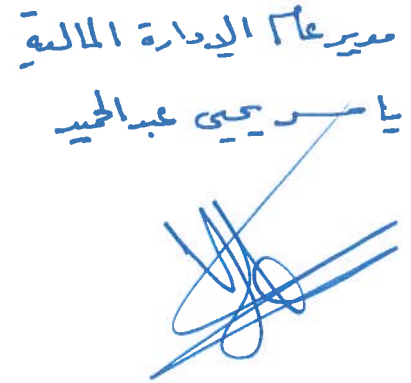 مدير عام الإدارة المالية
ياسر يحيى عبدالحميد